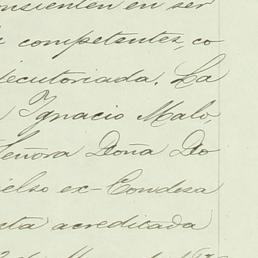 onsienten en ser
competentes, co
ejecutoriada. La
Ygnacio Malo,
Señora Doña Do
ielso ex-Condesa
cta acreditada